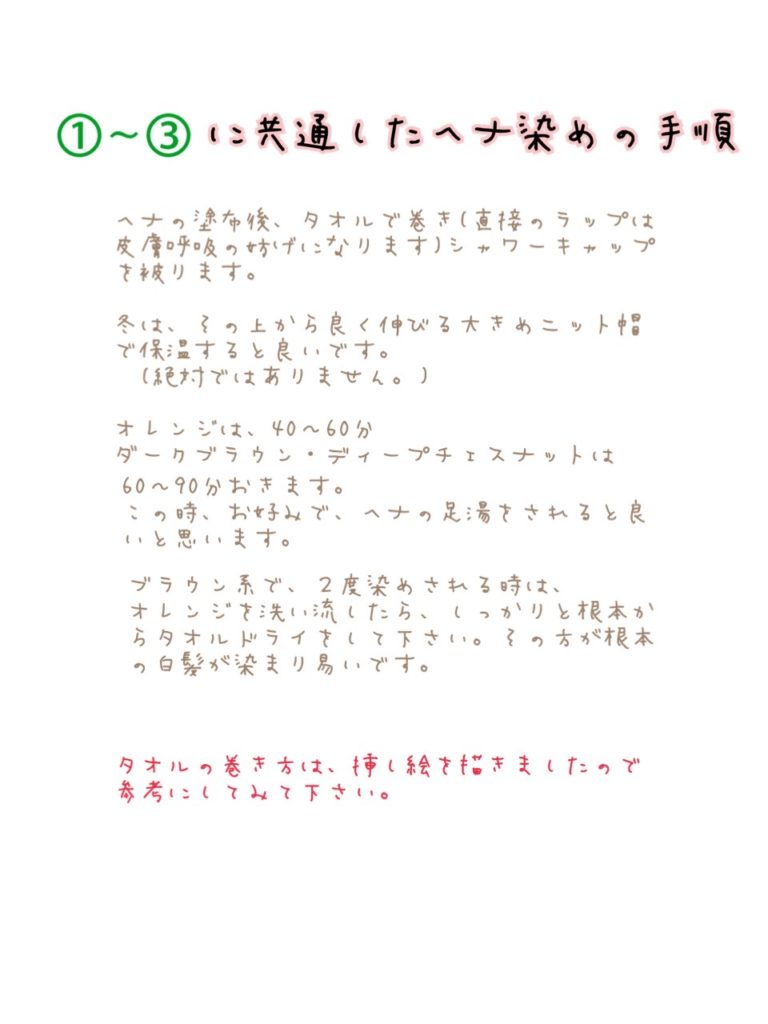 ①～③ に共通したヘナ染めの手順
ヘナの塗布後、タオルで巻き(直接のラップは
皮膚呼吸の妨げになります)シャワーキャップ
を被ります。
冬は、その上から良く伸びる大きめニット帽
で保温すると良いです。
(絶対ではありません。)
オレンジは、40～60分
ダークブラウン・ディープチェスナットは
60～90分おきます。
この時、お好みで、ヘナの足湯をされると良
いと思います。
ブラウン系で、2度染めされる時は、
オレンジを洗い流したら、しっかりと根本か
らタオルドライをして下さい。その方が根本
の白髪が染まり易いです。
タオルの巻き方は、挿し絵を描きましたので
参考にしてみて下さい。